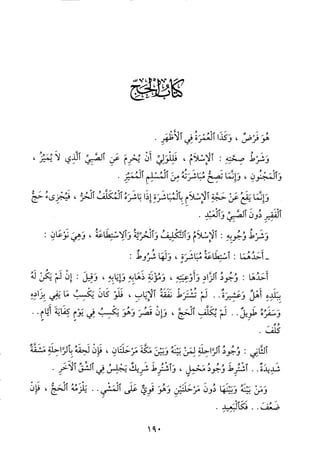 كتاب الحج
هُوَ فَرْضٌ ، وَكَذَا ٱلْعُمْرَةُ فِي ٱلأَظْهَرِ .
وَشَرْطُ صِحَّتِهِ : ٱلإِسْلاَمُ ، فَلِلْوَلِيِّ أَنْ يُحْرِمَ عَنِ ٱلصَّبِيِّ ٱلَّذِي لاَ يُمَيِّزُ ،
وَٱلْمَجْنُونِ ، وَإِنَّمَا تَصِحُّ مُبَاشَرَتُهُ مِنَ ٱلْمُسْلِمِ ٱلْمُمَيِّزِ .
وَإِنَّمَا يَقَعُ عَنْ حَجَّةِ ٱلإِسْلاَمِ بِٱلْمُبَاشَرَةِ إِذَا بَاشَرَهُ ٱلْمُكَلَّفُ ٱلْحُرُّ ، فَيُجْزِىءُ حَجُّ
ٱلْفَقِيرِ دُونَ ٱلصَّبِيِّ وَٱلْعَبْدِ .
وَشَرْطُ وُجُوبِهِ : ٱلإِسْلاَمُ وَٱلتَّكْلِيفُ وَٱلْحُرِّيَّةُ وَٱلاِسْتِطَاعَةُ ، وَهِيَ نَوْعَانِ :
ـ أَحَدُهُمَا : ٱسْتِطَاعَةُ مُبَاشَرَةٍ ، وَلَهَا شُرُوطٌ :
أَحَدُهَا : وُجُودُ ٱلزَّادِ وَأَوْعِيَتِهِ ، وَمُؤْنَةِ ذَهَابِهِ وَإِيَابِهِ ، وَقِيلَ : إِنْ لَمْ يَكُنْ لَهُ
بِبَلَدِهِ أَهْلٌ وَعَشِيرَةٌ . . لَمْ تُشْتَرَطْ نَفَقَةُ ٱلإِيَابِ ، فَلَوْ كَانَ يَكْسِبُ مَا يَفِي بِزَادِهِ
وَسَفَرُهُ طَوِيلٌ . . لَمْ يُكَلَّفِ ٱلْحَجَّ ، وَإِنْ قَصُرَ وَهُوَ يَكْسِبُ فِي يَوْمٍ كِفَايَةَ أَيَّامٍ . .
كُلِّفَ .
ٱلثَّانِي : وُجُودُ ٱلرَّاحِلَةِ لِمَنْ بَيْنَهُ وَبَيْنَ مَكَّةَ مَرْحَلَتَانِ ، فَإِنْ لَحِقَهُ بِٱلرَّاحِلَةِ مَشَقَّةٌ
شَدِيدَةٌ . . ٱشْتُرِطَ وُجُودُ مَحْمِلٍ ، وَٱشْتُرِطَ شَرِيكٌ يَجْلِسُ فِي ٱلشِّقِّ ٱلآخَرِ .
وَمَنْ بَيْنَهُ وَبَيْنَهَا دُونَ مَرْحَلَتَيْنِ وَهُوَ قَوِيٌّ عَلَى ٱلْمَشْيِ . . يَلْزَمُهُ ٱلْحَجُّ ، فَإِنْ
ضَعُفَ . . فَكَٱلْبَعِيدِ .
١٩٠